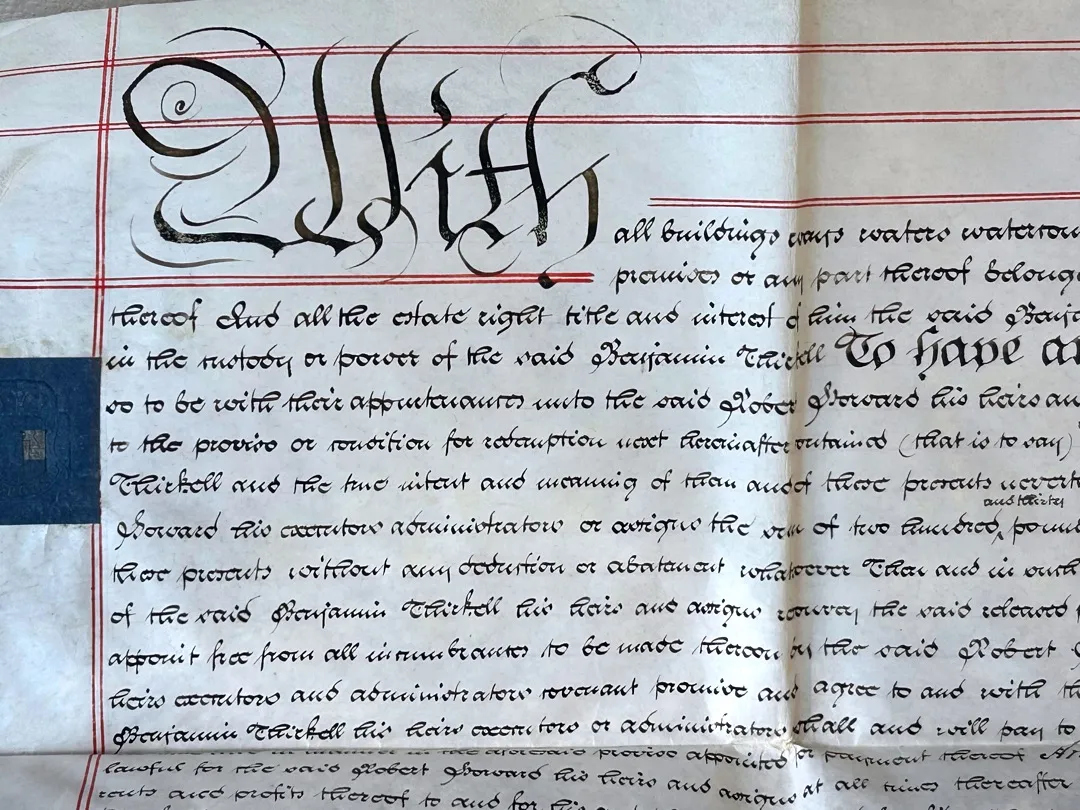 With
all buildings ways waters watercou
premises or any part thereof belong
thereof And all the estate right title and interest of him the said Benj
in the custody or power of the said Benjamin Thirkell To have an
so to be with their appurtenances unto the said Robert Howard his heirs an
to the proviso or condition for redemption next hereinafter contained (that is to say)
Thirkell and the true intent and meaning of them and of these presents nevert
and thirty
Howard his executors administrators or assigns the sum of two hundred pound
these presents without any deduction or abatement whatsoever Then and in such
of the said Benjamin Thirkell his heirs and assigns reconvey the said released
appoint free from all incumbrances to be made thereon by the said Robert
heirs executors and administrators covenant promise and agree to and with th
Benjamin Thirkell his heirs executors or administrators shall and will pay to
in manner in the aforesaid proviso appointed for payment thereof
lawful for the said Robert Howard his heirs and assigns at all times thereafter
rents and profits thereof to and for his